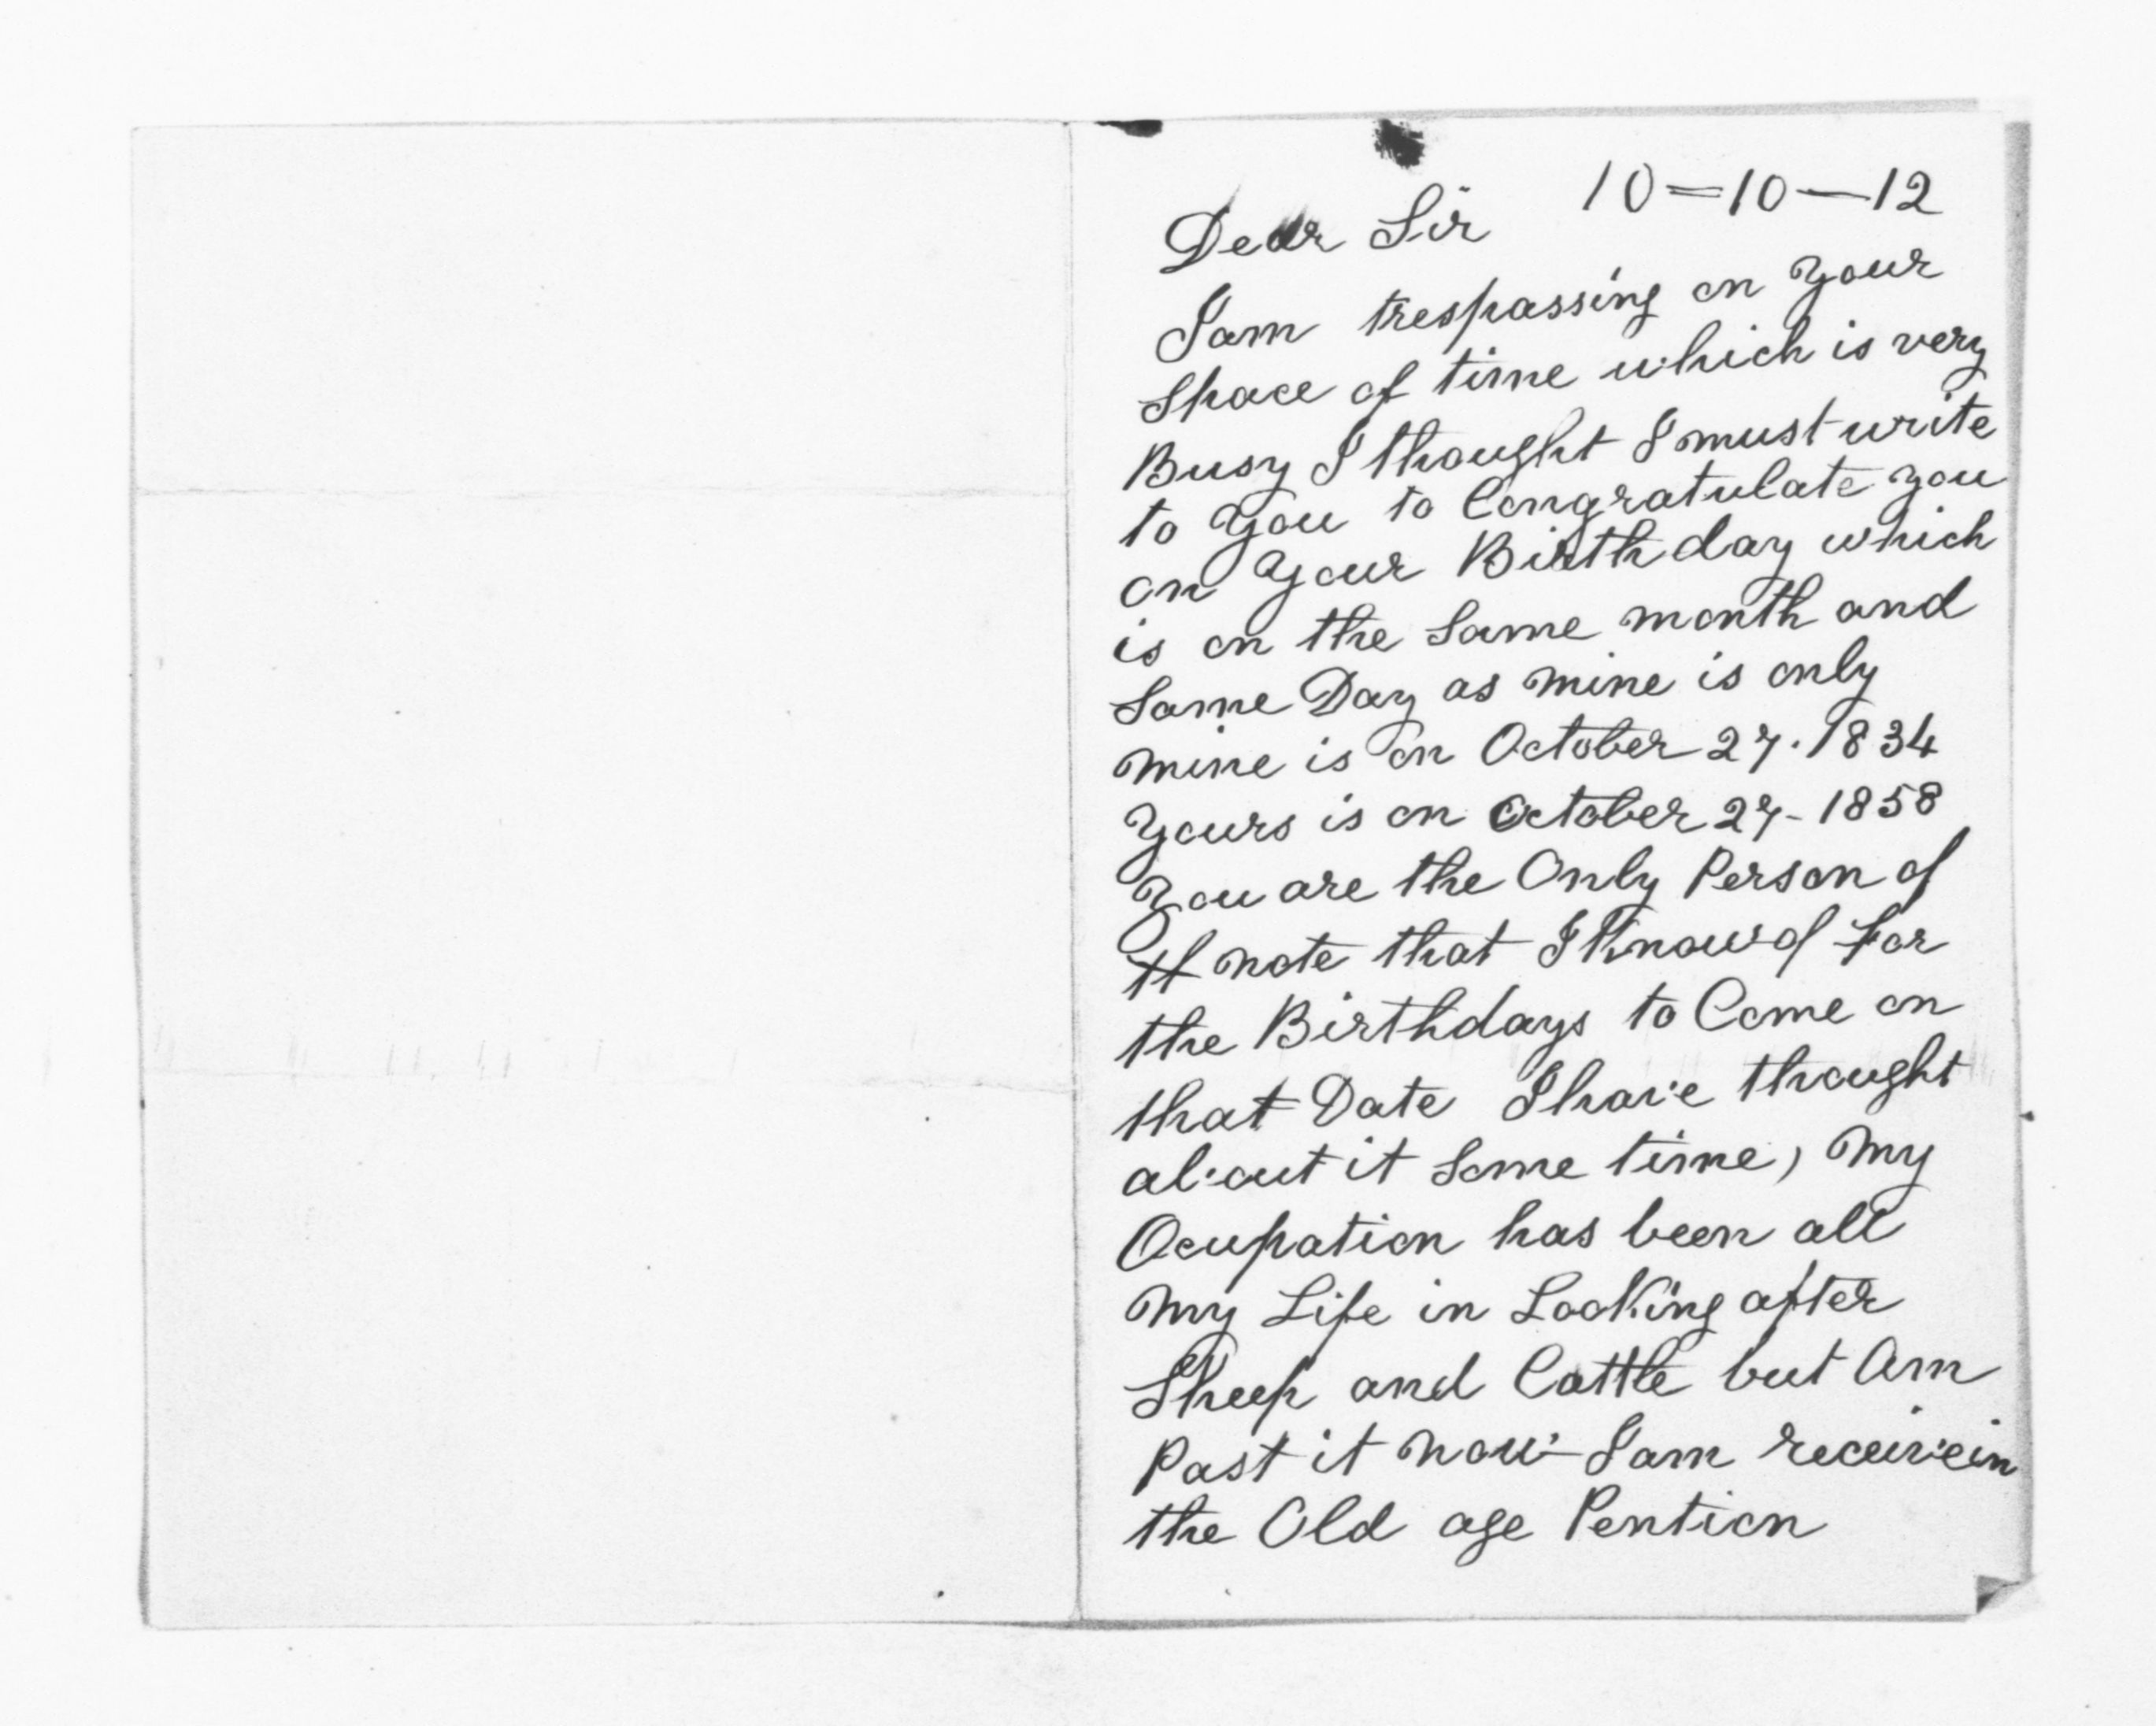 10=10-12
Dear Sir
I am trespassing on your
Space of time which is very
Busy I thought I must write
to you to Congratulate you
on your Birthday which
is on the Same month and
Same Day as mine is only
mine is on October 27. 1834
yours is on October 27- 1858
you are the Only Person of
note that I Know of For
the Birthdays to Come on
that Date I have thought
about it Some time, my
Ocupation has been all
my Life in Looking after
Sheep and Cattle but Am
Past it now I am receivein
the Old age Pention